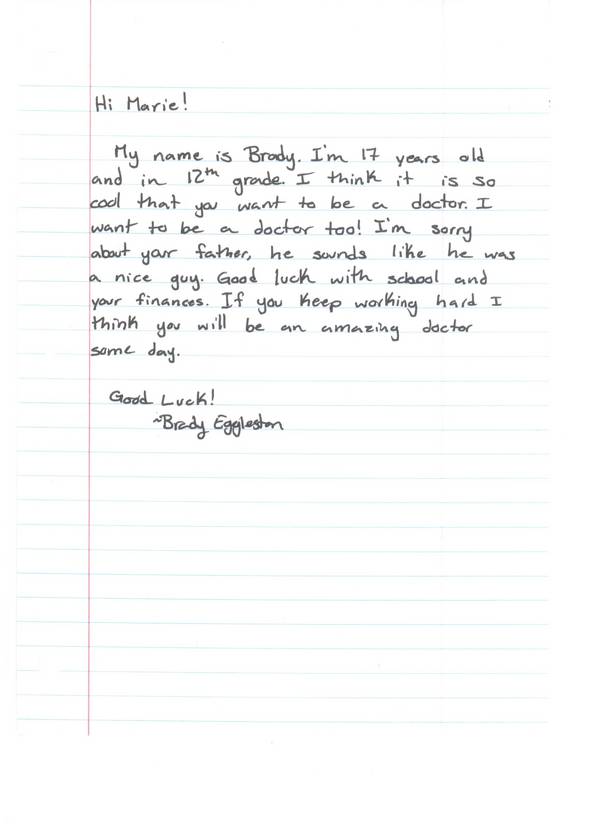 Hi Marie!
My name is Brady. I'm 17 years old
and in 12th grade. I think it is so
cool that you want to be a doctor. I
want to be a doctor too! I'm sorry
about your father, he sounds like he was
a nice guy. Good luck with school and
your finances. If you keep working hard I
think you will be an amazing doctor
some day.
Good Luck!
~Brady Eggleston